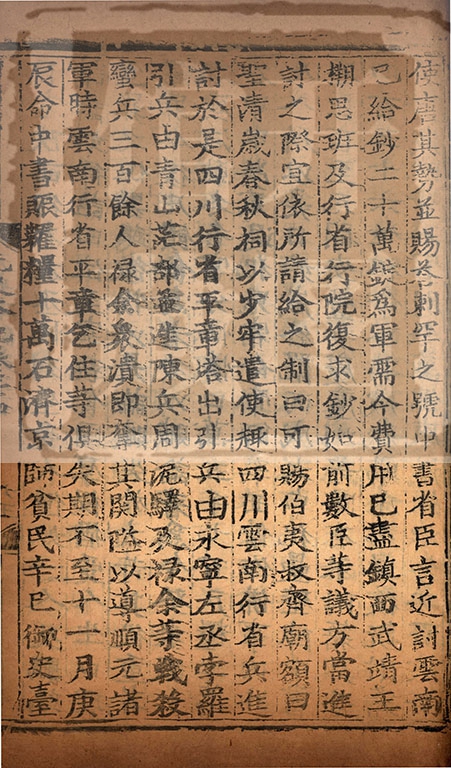 使唐其勢並賜荅剌罕之號中書省臣言近討雲南
已給鈔二十萬錠爲軍需今費用已盡鎮西武靖王
搠思班及行省行院復求鈔如前數臣等議方當進
討之際宜依所請給之制曰可賜伯夷叔齊廟額曰
聖清歲春秋祠以少牢遣使趣四川雲南行省兵進
討於是四川行省平章塔出引兵由永寧左丞孛羅
引兵由青山茫部並進陳兵周泥驛及祿余等戰殺
蠻兵三百餘人祿余衆潰即奪其關隘以導順元諸
軍時雲南行省平章乞住等俱失期不至十一月庚
辰命中書賑糶糧十萬石濟京師貧民辛巳御史臺